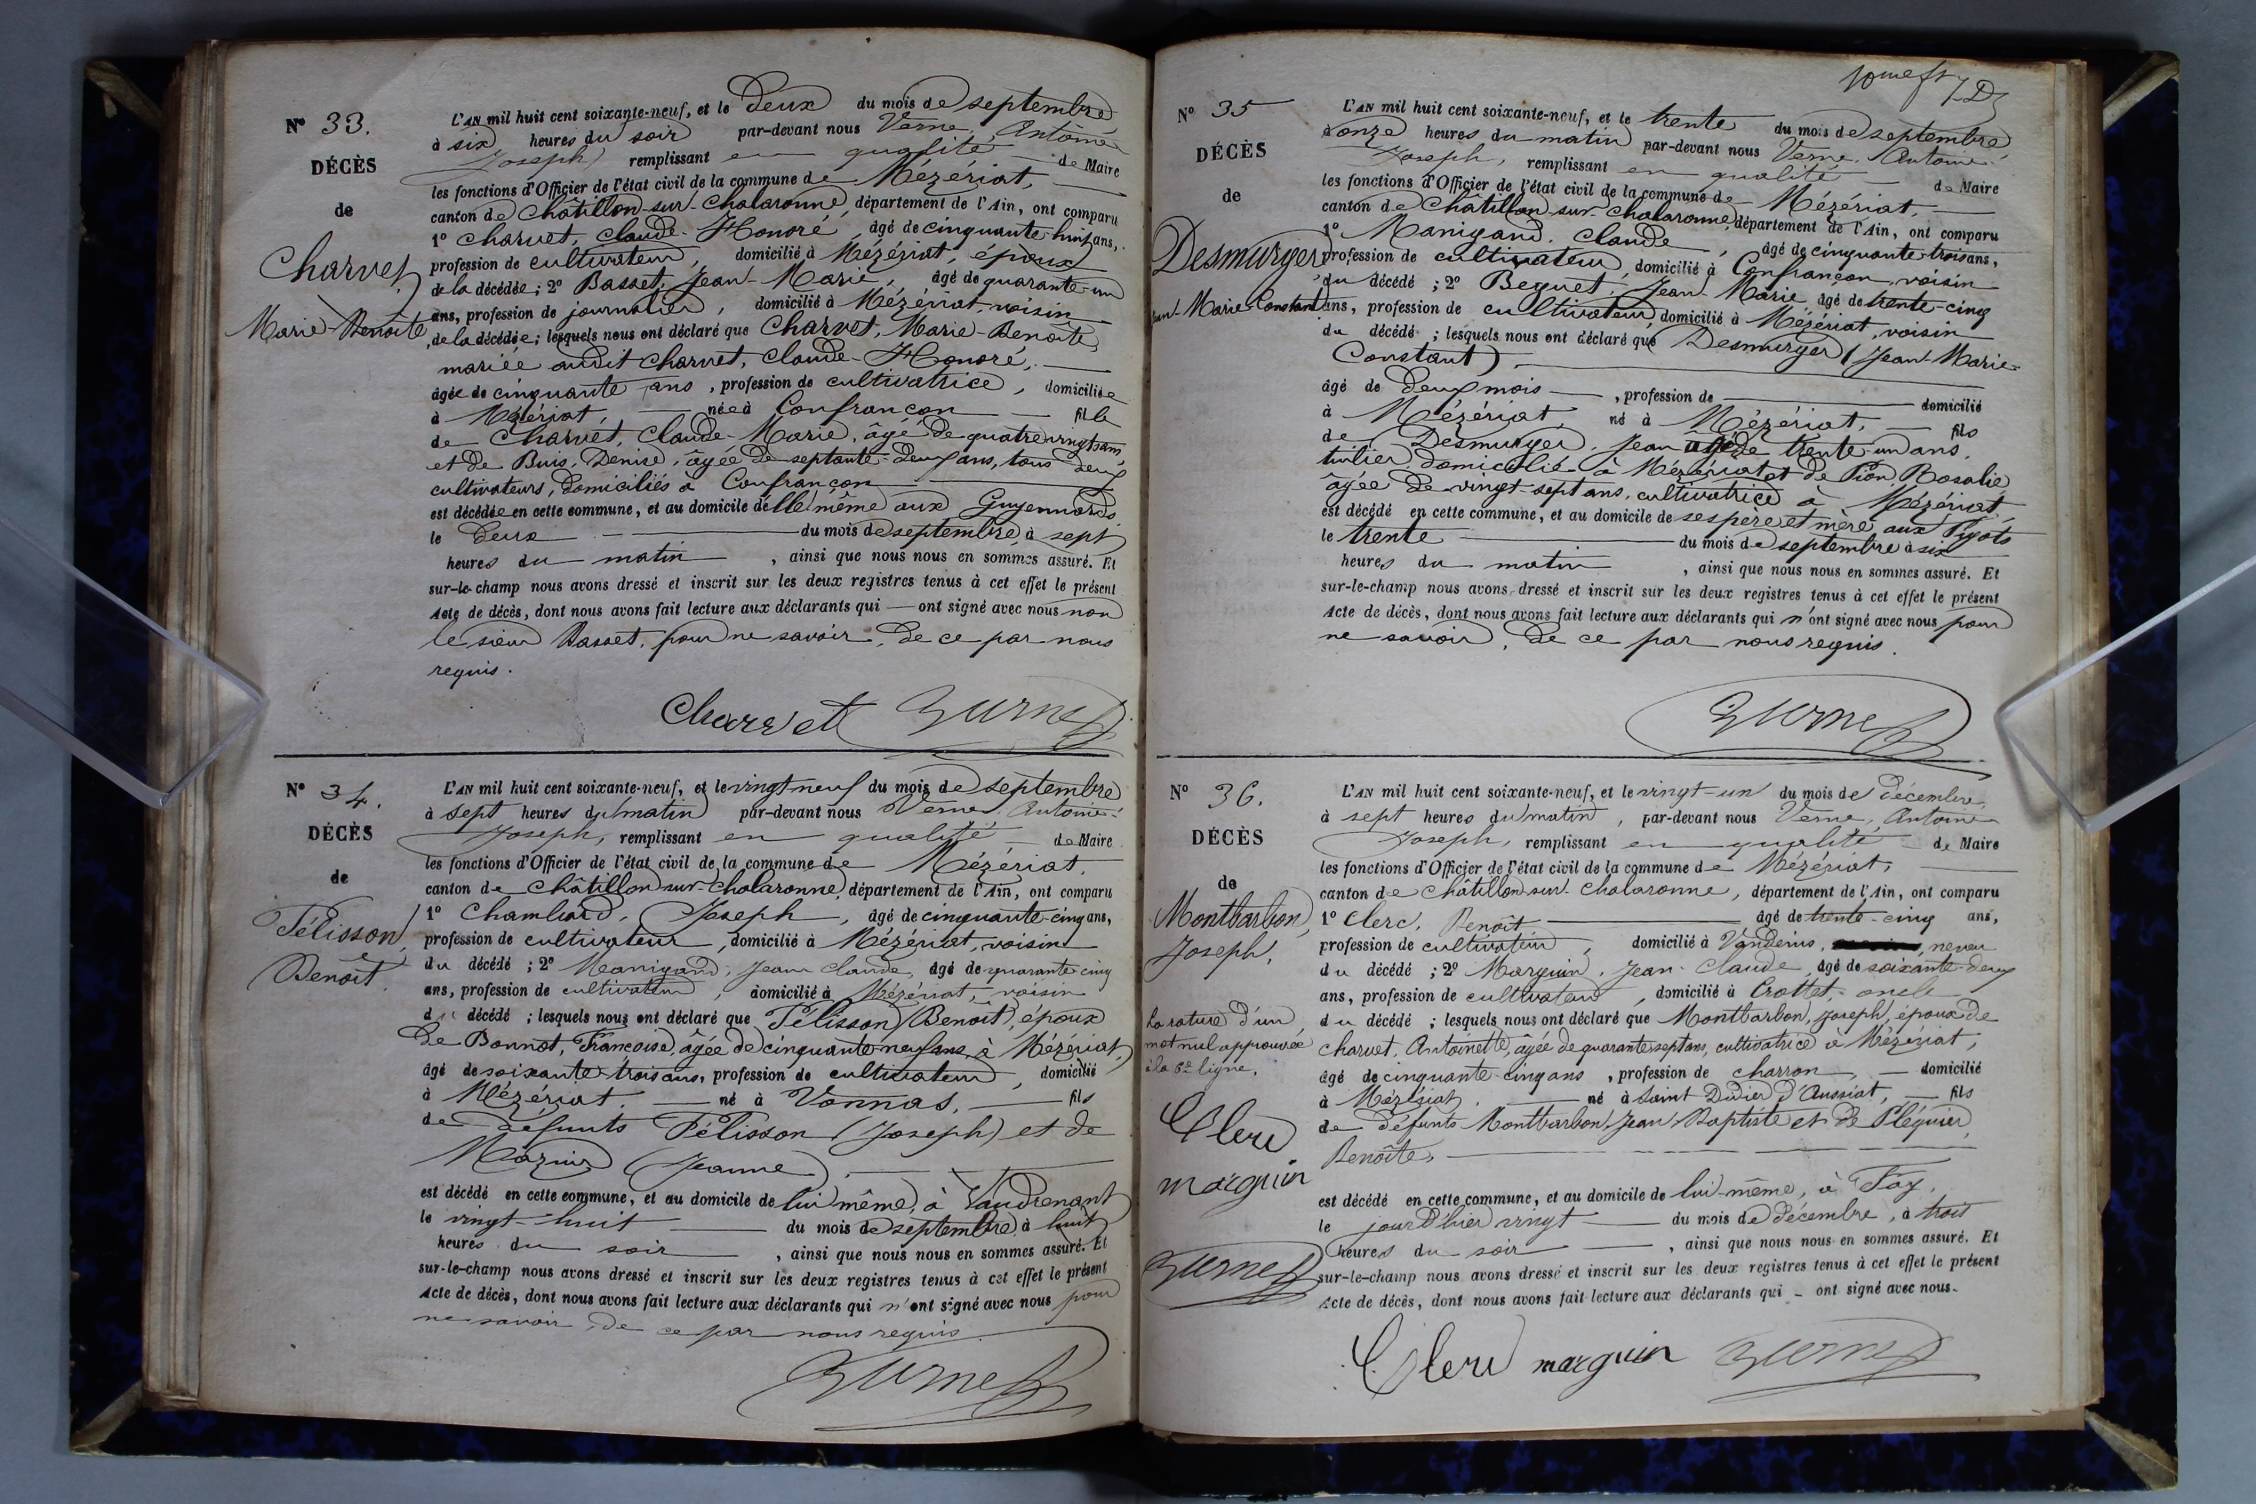 N° 33.
DÉCÈS
de
Charvet,
Marie-Benoîte
L'AN mil huit cent soixante-neuf, et le deux du mois de septembre
à six heures du soir par-devant nous Verne, Antoine
Joseph, remplissant en qualité de Maire
les fonctions d'Officier de l'état civil de la commune de Mézériat,
canton de Châtillon-sur-Chalaronne, département de l'Ain, ont comparu
1° Charvet, Claude-Honoré, âgé de cinquante-huit ans,
profession de cultivateur, domicilié à Mézériat, époux
de la décédée; 2° Basset, Jean-Marie, âgé de quarante-un
ans, profession de journalier, domicilié à Mézériat, voisin
de la décédée; lesquels nous ont déclaré que Charvet, Marie-Benoîte,
mariée audit Charvet, Claude-Honoré,
âgée de cinquante ans, profession de cultivatrice, domiciliée
à Mézériat, née à Confrançon fille
de Charvet, Claude-Marie, âgé de quatre vingts ans,
et de Buis, Denise, âgée de septante-deux ans, tous deux
cultivateurs, domiciliés à Confrançon
est décédée en cette commune, et au domicile d'elle même aux Guyennards
le deux du mois de septembre, à sept
heures du matin, ainsi que nous nous en sommes assuré. Et
sur-le-champ nous avons dressé et inscrit sur les deux registres tenus à cet effet le présent
Acte de décès, dont nous avons fait lecture aux déclarants qui — ont signé avec nous non
le sieur Basset, pour ne savoir, de ce par nous
requis.
Charvet Verne
N° 34.
DÉCÈS
de
Pélisson,
Benoît.
L'AN mil huit cent soixante-neuf, et le vingt neuf du mois de septembre
à sept heures du matin par-devant nous Verne, Antoine-
Joseph, remplissant en qualité de Maire
les fonctions d'Officier de l'état civil de la commune de Mézériat,
canton de Châtillon-sur-Chalaronne, département de l'Ain, ont comparu
1° Chambard, Joseph, âgé de cinquante-cinq ans,
profession de cultivateur, domicilié à Mézériat, voisin
du décédé; 2° Manigand, Jean Claude, âgé de quarante cinq
ans, profession de cultivateur, domicilié à Mézériat, voisin
du décédé; lesquels nous ont déclaré que Pélisson (Benoît), époux
de Bonnot, Françoise, âgée de cinquante-neuf ans, à Mézériat,
âgé de soixante-trois ans, profession de cultivateur, domicilié
à Mézériat, né à Vonnas, fils
de défunts Pélisson (Joseph) et de
(Jeanne),
est décédé en cette commune, et au domicile de lui même, à Vaudrenant
le vingt-huit du mois de septembre, à huit
heures du soir, ainsi que nous nous en sommes assuré. Et
sur-le-champ nous avons dressé et inscrit sur les deux registres tenus à cet effet le présent
Acte de décès, dont nous avons fait lecture aux déclarants qui n'ont signé avec nous pour
ne savoir, de ce par nous requis.
Verne
N° 35
DÉCÈS
de
Desmurger,
Jean-Marie-Constant
L'AN mil huit cent soixante-neuf, et le trente du mois de septembre
à onze heures du matin par-devant nous Verne, Antoine-
Joseph, remplissant en qualité de Maire
les fonctions d'Officier de l'état civil de la commune de Mézériat,
canton de Châtillon-sur-Chalaronne, département de l'Ain, ont comparu
1° Manigand, Claude, âgé de cinquante-trois ans,
profession de cultivateur, domicilié à Confrançon, voisin
du décédé; 2° Beguet, Jean-Marie, âgé de trente-cinq
ans, profession de cultivateur, domicilié à Mézériat, voisin
du décédé; lesquels nous ont déclaré que Desmurger (Jean-Marie-
Constant)
âgé de deux mois, profession de domicilié
à Mézériat, né à Mézériat, fils
de Desmurger, Jean âgé de trente-un ans,
tuilier, domicilié à Mézériat et de Pion, Rosalie
âgée de vingt-sept ans, cultivatrice à Mézériat,
est décédé en cette commune, et au domicile de ses père et mère aux Pigots
le trente du mois de septembre à six
heures du matin, ainsi que nous nous en sommes assuré. Et
sur-le-champ nous avons dressé et inscrit sur les deux registres tenus à cet effet le présent
Acte de décès, dont nous avons fait lecture aux déclarants qui n'ont signé avec nous pour
ne savoir, de ce par nous requis.
Verne
N° 36.
DÉCÈS
de
Montbarbon,
Joseph,
La rature d'un
mot nul approuvée
à la 6e ligne.
Clerc
marguin
Verne
L'AN mil huit cent soixante-neuf, et le vingt-un du mois de décembre,
à sept heures du matin, par-devant nous Verne, Antoine
Joseph, remplissant en qualité de Maire
les fonctions d'Officier de l'état civil de la commune de Mézériat,
canton de Châtillon-sur-Chalaronne, département de l'Ain, ont comparu
1° Clerc, Benoît âgé de trente-cinq ans,
profession de cultivateur, domicilié à Vandeins, neveu
du décédé; 2° Marguin, Jean-Claude, âgé de soixante-deux
ans, profession de cultivateur, domicilié à Crottet, oncle
du décédé; lesquels nous ont déclaré que Montbarbon, Joseph, époux de
Charvet, Antoinette, âgée de quarante-sept ans, cultivatrice à Mézériat,
âgé de cinquante-cinq ans, profession de charron, domicilié
à Mézériat, né à Saint Didier d'Aussiat, fils
de défunts Montbarbon, Jean-Baptiste et de Pléguier,
Benoîte,
est décédé en cette commune, et au domicile de lui-même, à Fay,
le jour d'hier vingt du mois de décembre, à trois
heures du soir, ainsi que nous nous en sommes assuré. Et
sur-le-champ nous avons dressé et inscrit sur les deux registres tenus à cet effet le présent
Acte de décès, dont nous avons fait lecture aux déclarants qui - ont signé avec nous.
Clerc marguin Verne